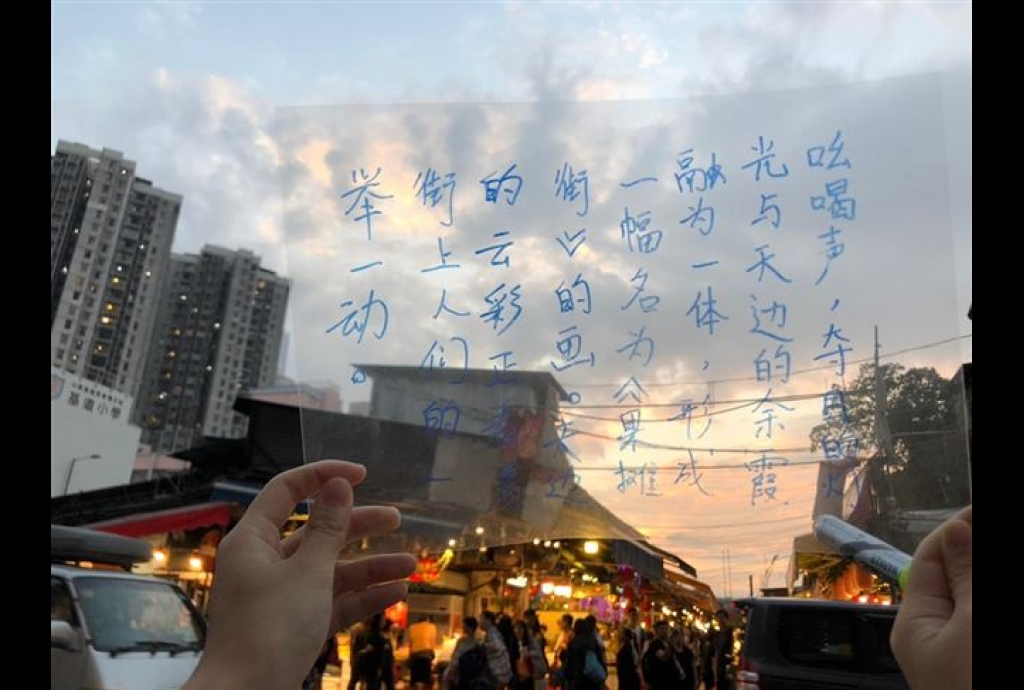 吆喝声，夺目的灯
光与天边的余霞
融为一体，形成
一幅名为《果摊
街》的画。边
的云彩正
街上人们的一
举一动。
基道小學